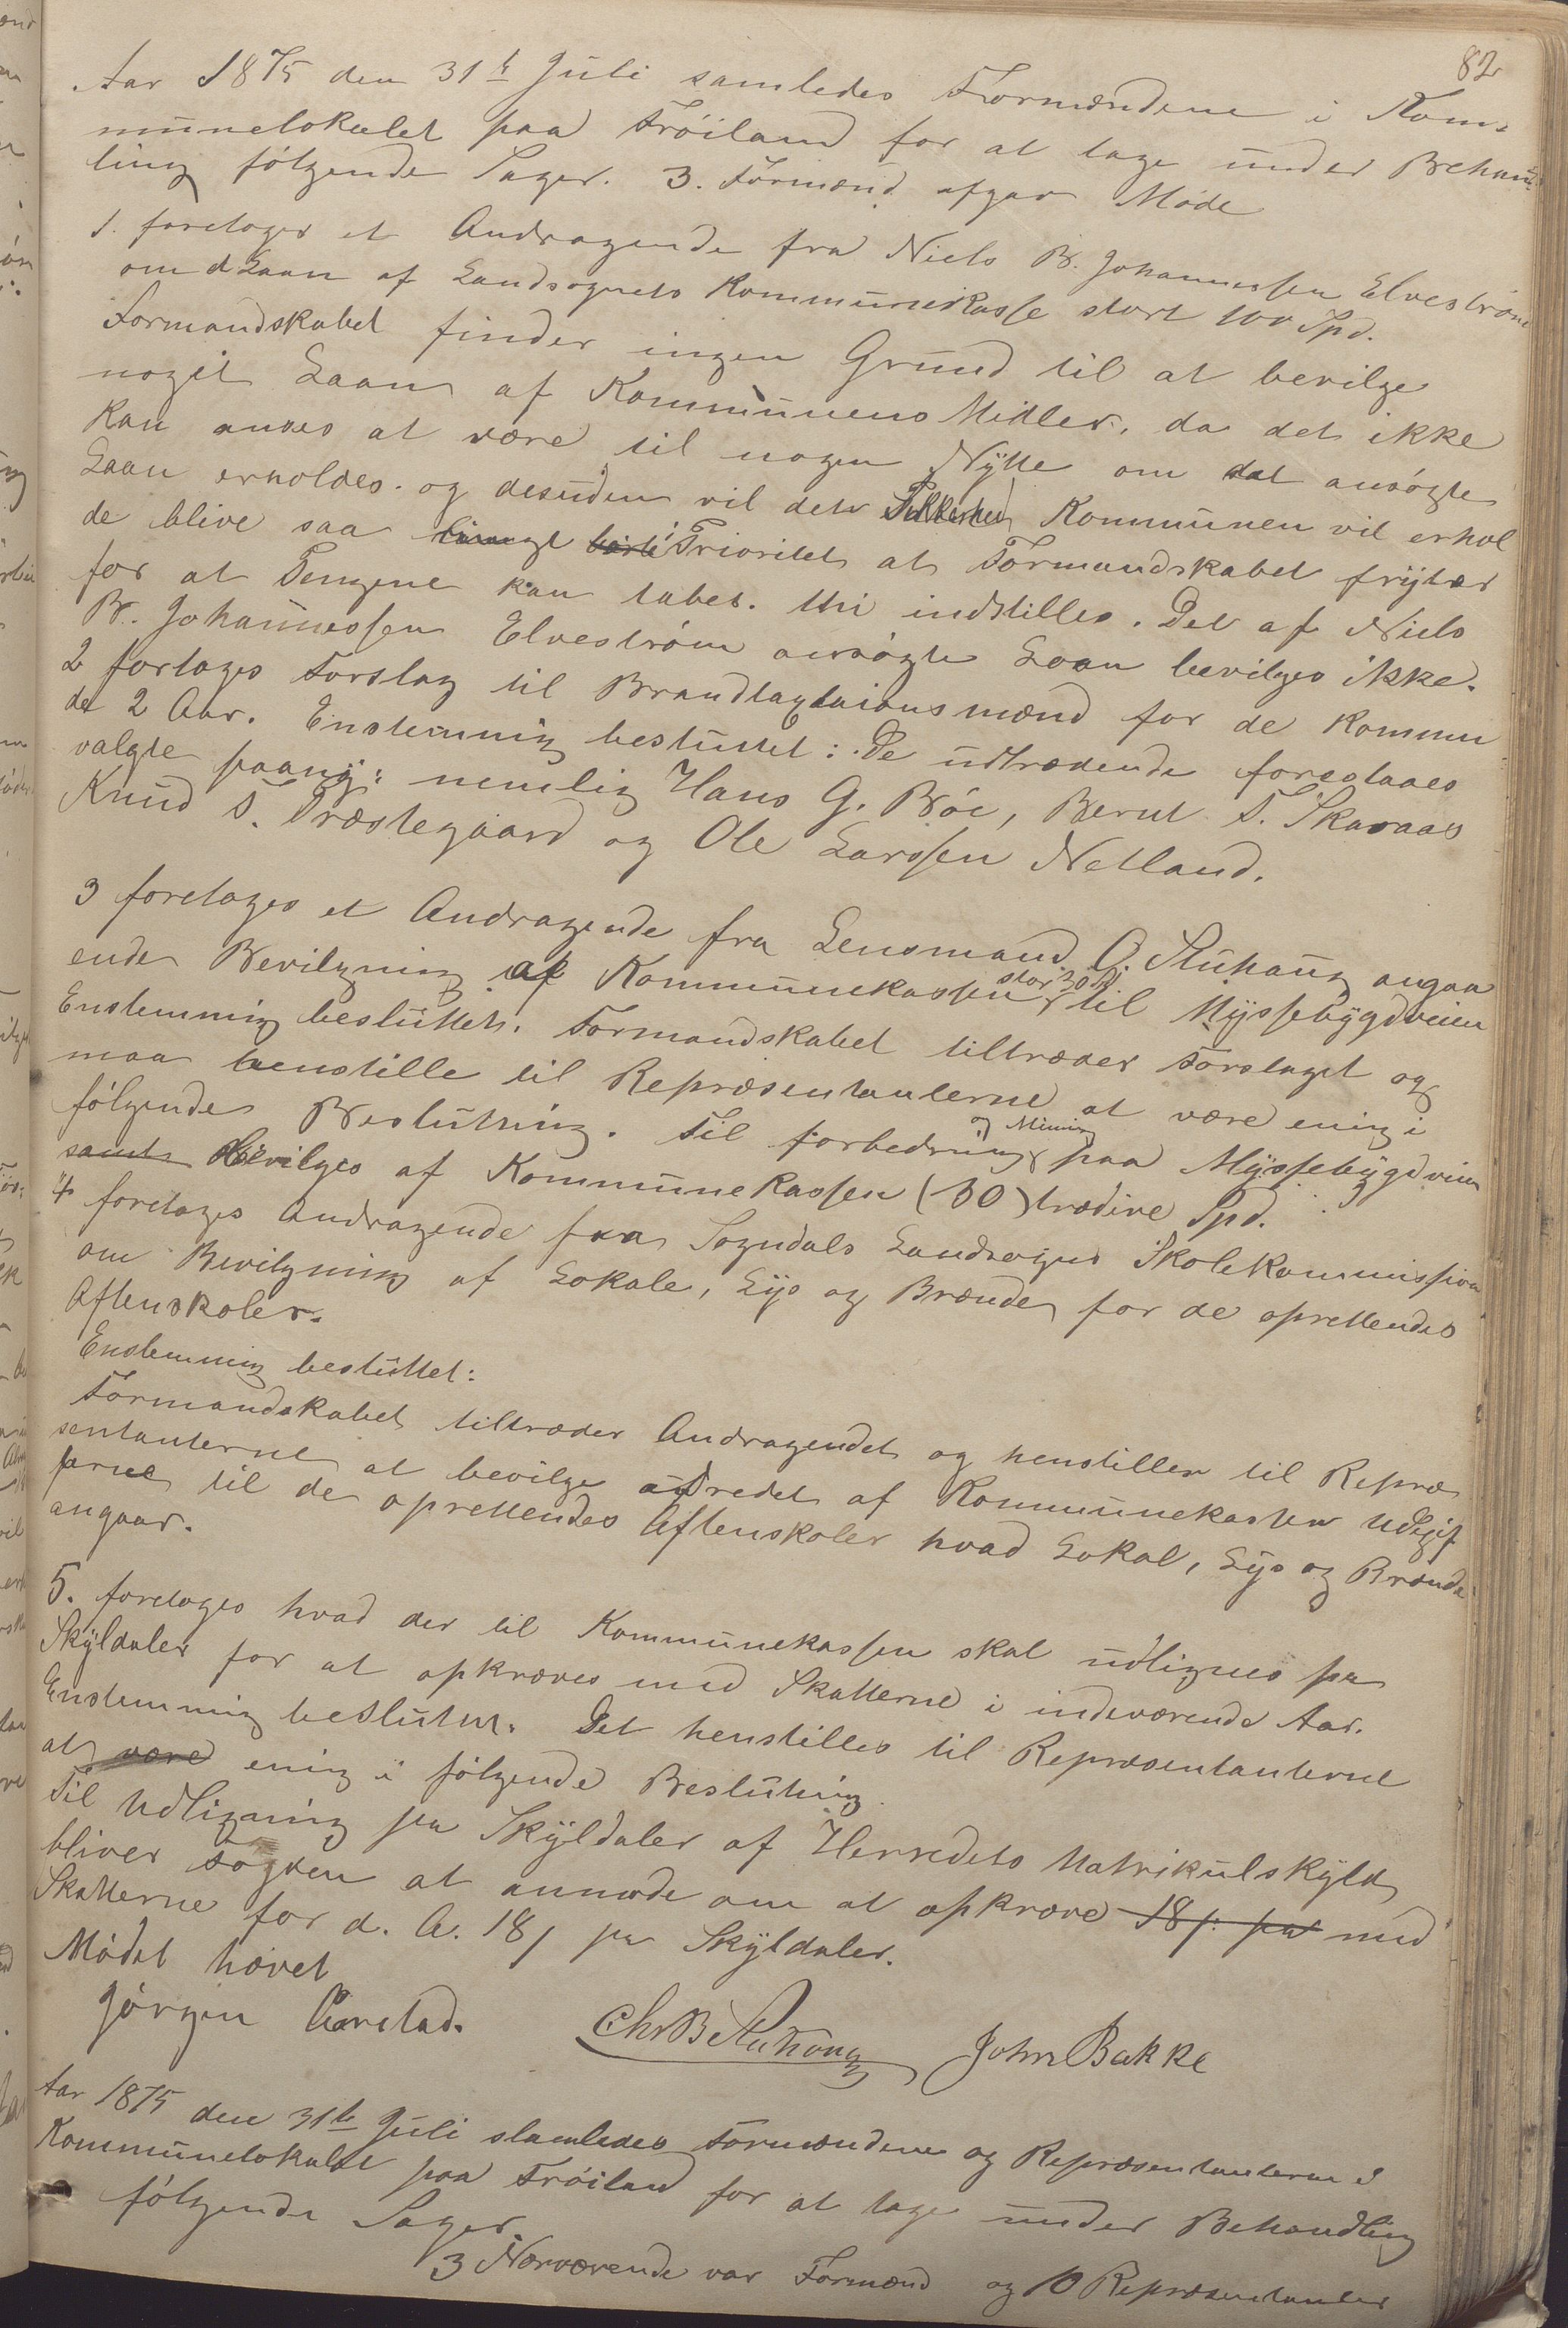 82
Aar 1875 den 31te Juli samledes Formændene i Kom-
munelokalet paa Frøiland for at tage under Behand-
ling følgende Sager. 3. Formænd afgav Møde
1. foretoges et Andragende fra Niels B. Johannessen Elvestrøm
om et Laan af Landsognets Kommunekasse stort 100 Spd.
Formandskabet finder ingen Grund til at bevilge
noget Laan af Kommunens Midler, da det ikke
kan ansees at være til nogen Nytte om det ansøgte
Laan erholdes. og desuden vil den Sikkerhed Kommunen vil erhol
de blive saa langt borte Prioritet at Formandskabet frygter
for at Pengene kan tabes. thi indstilles. Det af Niels
B. Johannessen Elvestrøm ansøgte Laan bevilges ikke.
2 fortoges Forslag til Brandtaxtationsmænd for de kommen
de 2 Aar. Enstemmig besluttet: De udtrædende foreslaaes
valgte paany: nemlig Hans G. Bøe, Bernt T. Skaraas
Knud T. Præstegaard og Ole Larssen Netland.
3 foretoges et Andragende fra Lensmand O. Stuhaug angaa
ende Bevilgning af Kommunekassen stor 30 Spd til Myssebygdveien
Enstemmig besluttet. Formandskabet tiltræder Forslaget og
maa henstille til Repræsentanterne at være enig i
følgende Beslutning. Til forbedring og Mining paa Myssebygdveien
samt bevilges af Kommunekassen (30) trædive Spd.
4 foretoges Andragende fra Sogndals Landsogns Skolekommission
om Bevilgning af Lokale, Lys og Brænde for de oprettendes
Aftenskoler.
Enstemmig besluttet:
Formandskabet tiltræder Andragendet og henstiller til Repræ
sentanterne at bevilge udredet af Kommunekassen Udgif
terne til de oprettendes Aftenskoler hvad Lokal, Lys og Brænde
angaar.
5. foretoges hvad der til Kommunekassen skal udlignes pr
Skyldaler for at opkræves med Skatterne i indeværende Aar.
Enstemmig besluttet. Det henstilles til Repræsentanterne
at være enig i følgende Beslutning.
Til Udligning pr Skyldaler af Herredets Matrikulskyld
bliver Fogden at anmode om at opkræve 18 /: pr med
Skatterne for d. A. 18 / pr Skyldaler.
Mødet hævet
Jørgen Aarstad. Chr B Stuhaug John Bakke
Aar 1875 den 31te Juli slamledes Formændene og Repræsentanterne i
Kommunelokalet paa Frøiland for at tage under Behandling
følgende Sager.
3 Nærværende var Formænd og 10 Repræsentanter